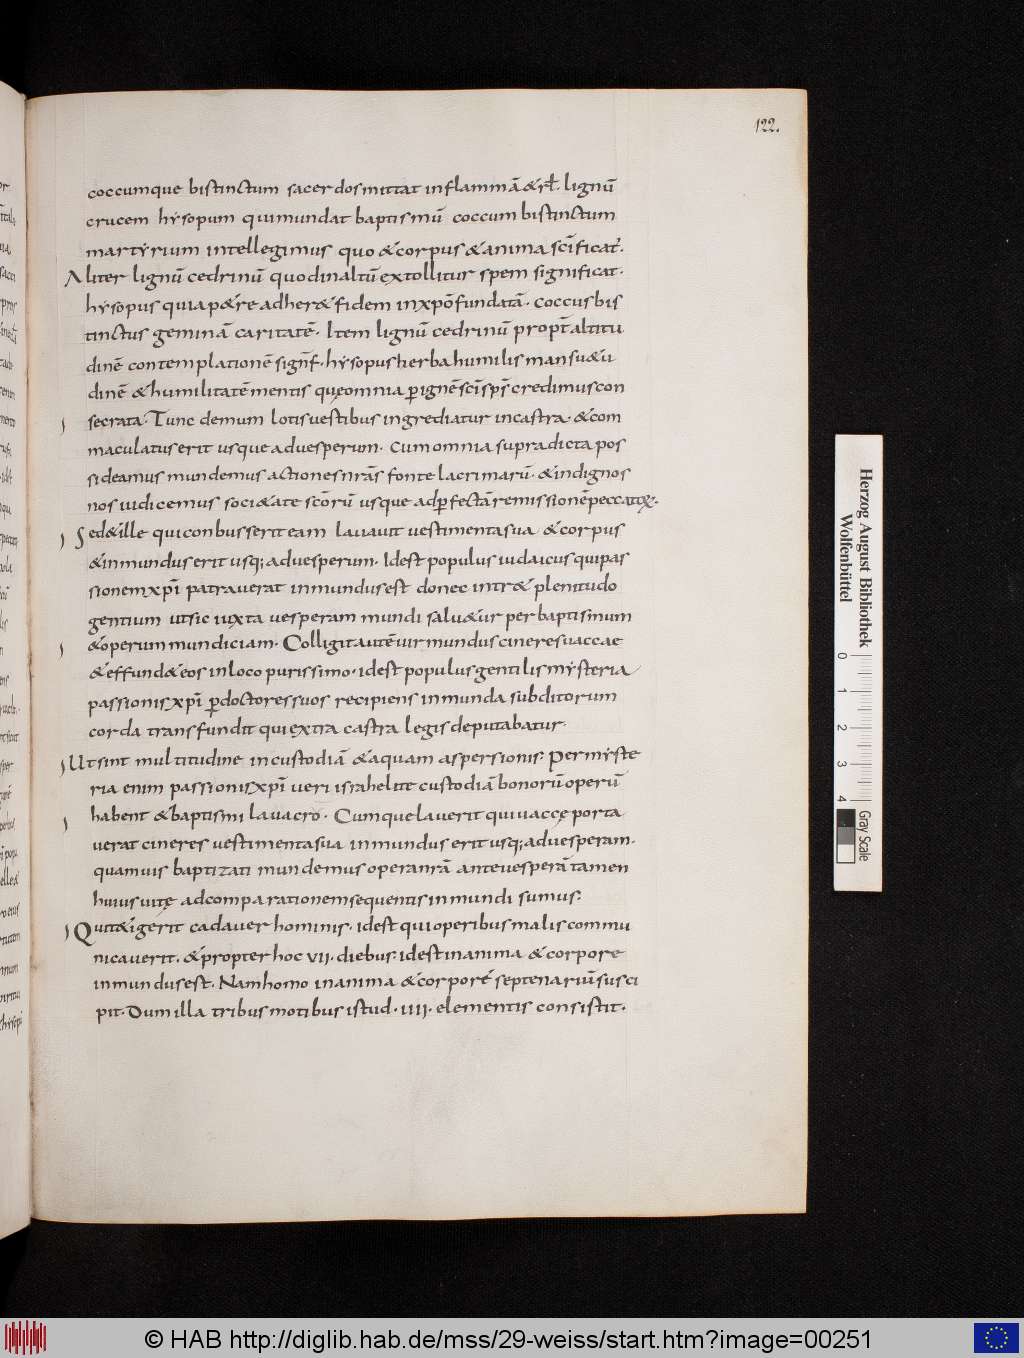 122.
coccumque bistinctum sacerdos mittat inflammā &rł. lignū
crucem hẏsopum quimundat baptismū coccum bistinctum
martẏrium intellegimus quo &corpus &anima scīficat᷑.
Aliter lignū cedrinū quodinaltū extollitur spem significat.
hẏsopus quia p&re adher& fidem inxpō fundatā. coccus bis
tinctus geminā caritatē. Item lignū cedrinū propt̄ altitu
dinē contemplationē signf̄. hẏsopus herba humilis mansu&u
dinē &humilitatē mentis quę omnia ꝑ ignē scī sps̄ credimus con
secrata. Tunc demum lotis vestibus ingrediatur incastra. &com
maculatus erit usque aduesperum. Cum omnia supradicta pos
sideamus mundemus actiones nr̄as fonte lacrimarū. &indignos
nos iudicemus soci&ate scōrū usque adꝑfectā remissionē peccatoꝝ.
Sed&ille qui conbusserit eam lauauit vestimenta sua &corpus
&inmundus erit usq; aduesperum. Idest populus iudaicus qui pas
sionem xpī patrauerat inmundus est donec intr& plenitudo
gentium utsic iuxta uesperam mundi salu&ur per baptismum
&operum mundiciam. Colligit autē uir mundus cineres uaccae
&effund& eos inloco purissimo. idest populus gentilis mẏsteria
passionis xpī ꝑ doctores suos recipiens inmunda subditorum
corda transfundit qui extra castra legis deputabatur.
Ut sint multitudine incustodiā &aquam aspersionis: Per mẏste
ria enim passionis xpī ueri israhelite custodiā bonorū operū
habent &baptismi lauacro. Cumque lauerit qui uaccę porta
uerat cineres vestimenta sua inmundus erit usq; aduesperam.
quamuis baptizati mundemus opera nr̄ā ante uesperā tamen
huius uitę adcomparationem sequentis inmundi sumus:
Qui t&igerit cadauer hominis. idest qui operibus malis commu
nicauerit. &propter hoc vii. diebus. idest inanima &corpore
inmundus est. Nam homo inanima &corporé septenariū susci
pit. Dum illa tribus motibus istud. iiii. elementis consistit.
Herzog August Bibliothek
Wolfenbüttel
0 1 2 3 4
Gray Scale
© HAB http://diglib.hab.de/mss/29-weiss/start.htm?image=00251